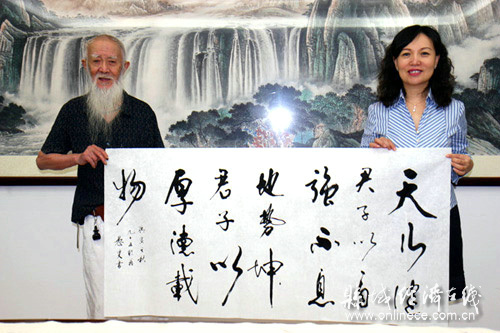 天行健
君子以自
強不息
地勢坤
君子以
厚德載
物
www.onlinece.com.cn